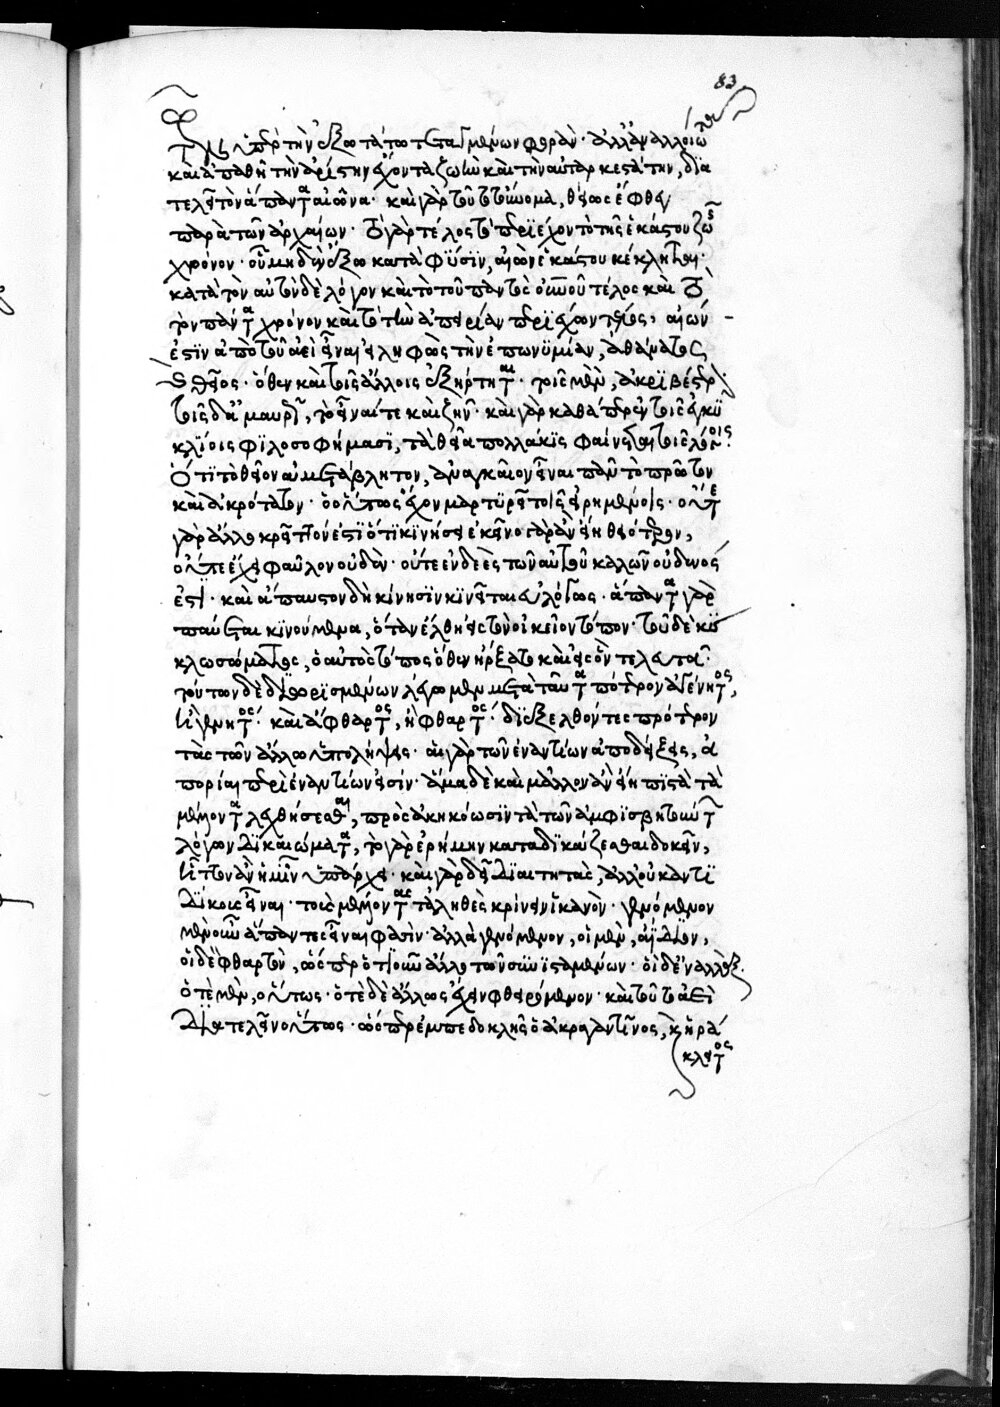 83
τῶν ὑπὲρ τὴν ἐξωτάτω τεταγμένων φοράν· ἀλλ' ἀναλλοίωτα
καὶ ἀπαθῆ τὴν ἀρίστην ἔχοντα ζωὴν καὶ τὴν αὐταρκεστάτην, δια
τελεῖ τὸν ἅπαντα αἰῶνα· καὶ γὰρ τοῦτο τοὔνομα, θείως ἔφθεγ
παρὰ τῶν ἀρχαίων· τὸ γὰρ τέλος τὸ περιέχον τὸ τῆς ἑκάστου ζωῆς
χρόνον· οὗ μηδὲν ἔξω κατὰ φύσιν, αἰὼν ἑκάστου κέκληται·
κατὰ τὸν αὐτὸν δὲ λόγον καὶ τὸ τοῦ παντὸς οὐρανοῦ τέλος καὶ τὸ
τὸν πάντα χρόνον καὶ τὸ τὴν ἀπειρίαν περιέχον τέλος, αἰών
ἐστιν ἀπὸ τοῦ ἀεὶ εἶναι εἰληφὼς τὴν ἐπωνυμίαν, ἀθάνατος
καὶ θεῖος· ὅθεν καὶ τοῖς ἄλλοις ἐξήρτηται· τοῖς μὲν, ἀκριβέστερον
τοῖς δ' ἀμαυρῶς, τὸ εἶναί τε καὶ ζῆν· καὶ γὰρ καθάπερ ἐν τοῖς ἐγκυ
κλίοις φιλοσοφήμασι, τὰ θεῖα πολλάκις φαίνεται τοῖς λόγοις·
ὅτι τὸ θεῖον ἀμετάβλητον, ἀναγκαῖον εἶναι πᾶν τὸ πρῶτον
καὶ ἀκρότατον· ὃ οὕτως ἔχον μαρτυρεῖ τοῖς εἰρημένοις· οὔτε
γὰρ ἄλλο κρεῖττον ἐστι ὅτι κινήσει ἐκεῖνο γὰρ ἂν εἴη θειότερον,
οὔτε ἔχει φαῦλον οὐδέν· οὔτε ἐνδεὲς τῶν αὐτοῦ καλῶν οὐδενός
ἐστι· καὶ ἄπαυστον δὴ κίνησιν κινεῖται εὐλόγως· ἅπαντα γὰρ
παύεται κινούμενα, ὅταν ἔλθῃ εἰς τὸν οἰκεῖον τόπον· τοῦ δὲ κύ
κλω σώματος, ὁ αὐτὸς τόπος ὅθεν ἤρξατο καὶ εἰς ὃν τελευτᾷ·
τούτων δὲ διωρισμένων λέγωμεν μετὰ ταῦτα πότερον ἀγένητος,
ἢ γενητός· καὶ ἄφθαρτος, ἢ φθαρτός· διεξελθόντες πρότερον
τὰς τῶν ἄλλων ὑπολήψεις· αἱ γὰρ τῶν ἐναντίων ἀποδείξεις, ἀ
πορίαι περὶ ἐναντίων εἰσίν· ἅμα δὲ καὶ μᾶλλον ἂν εἴη πιστὰ τὰ
μέλλοντα λεχθήσεσθαι, προσακηκόωσι τὰ τῶν ἀμφισβητούντων
λόγων δικαιώματα, τὸ γὰρ ἐρήμην καταδικάζεσθαι δοκεῖν,
ἧττον ἂν ἡμῖν ὑπάρχει· καὶ γὰρ δεῖ διαιτητὰς, ἀλλ' οὐκ ἀντι
δίκους εἶναι· τοὺς μέλλοντας τἀληθὲς κρίνειν ἱκανῶν· γενόμενον
μὲν οὖν ἅπαντες εἶναί φασιν· ἀλλὰ γενόμενον, οἱ μὲν, ἀΐδιον,
οἱ δὲ φθαρτὸν, ὥσπερ ὁτιοῦν ἄλλο τῶν συνισταμένων· οἱ δ' ἐναλλὰξ
ὁτὲ μὲν, οὕτως· ὁτὲ δὲ ἄλλως ἔχειν φθειρόμενον· καὶ τοῦτο ἀεὶ
διατελεῖν οὕτως· ὥσπερ ἐμπεδοκλῆς ὁ ἀκραγαντῖνος, καὶ ἡρά
κλειτος